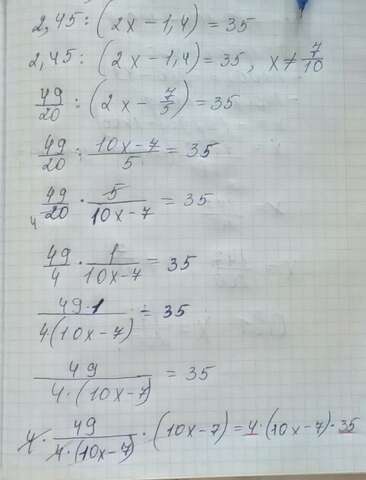 2,45 : (2x − 1,4) = 35
2,45 : (2x − 1,4) = 35, x ≠ 7/10
49/20 : (2x − 7/5) = 35
49/20 : (10x − 7)/5 = 35
49/20 · 5/(10x − 7) = 35
4
49/4 · 1/(10x − 7) = 35
49·1/(4(10x − 7)) = 35
49/(4·(10x − 7)) = 35
4 · 49/(4·(10x − 7)) · (10x − 7) = 4·(10x − 7)·35